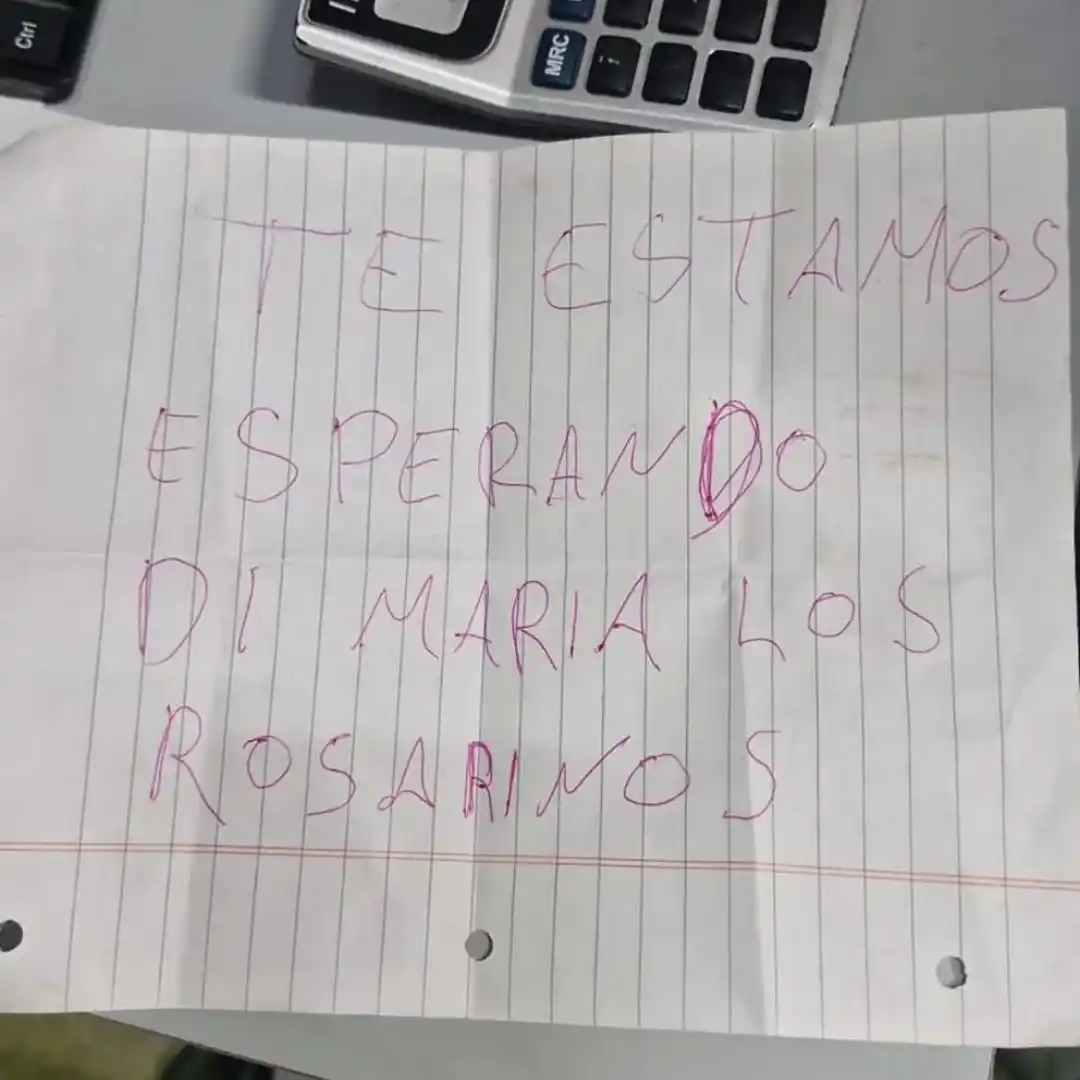 Ctrl
MRC
TE ESTAMOS
ESPERANDO
DI MARIA LOS
ROSARINOS